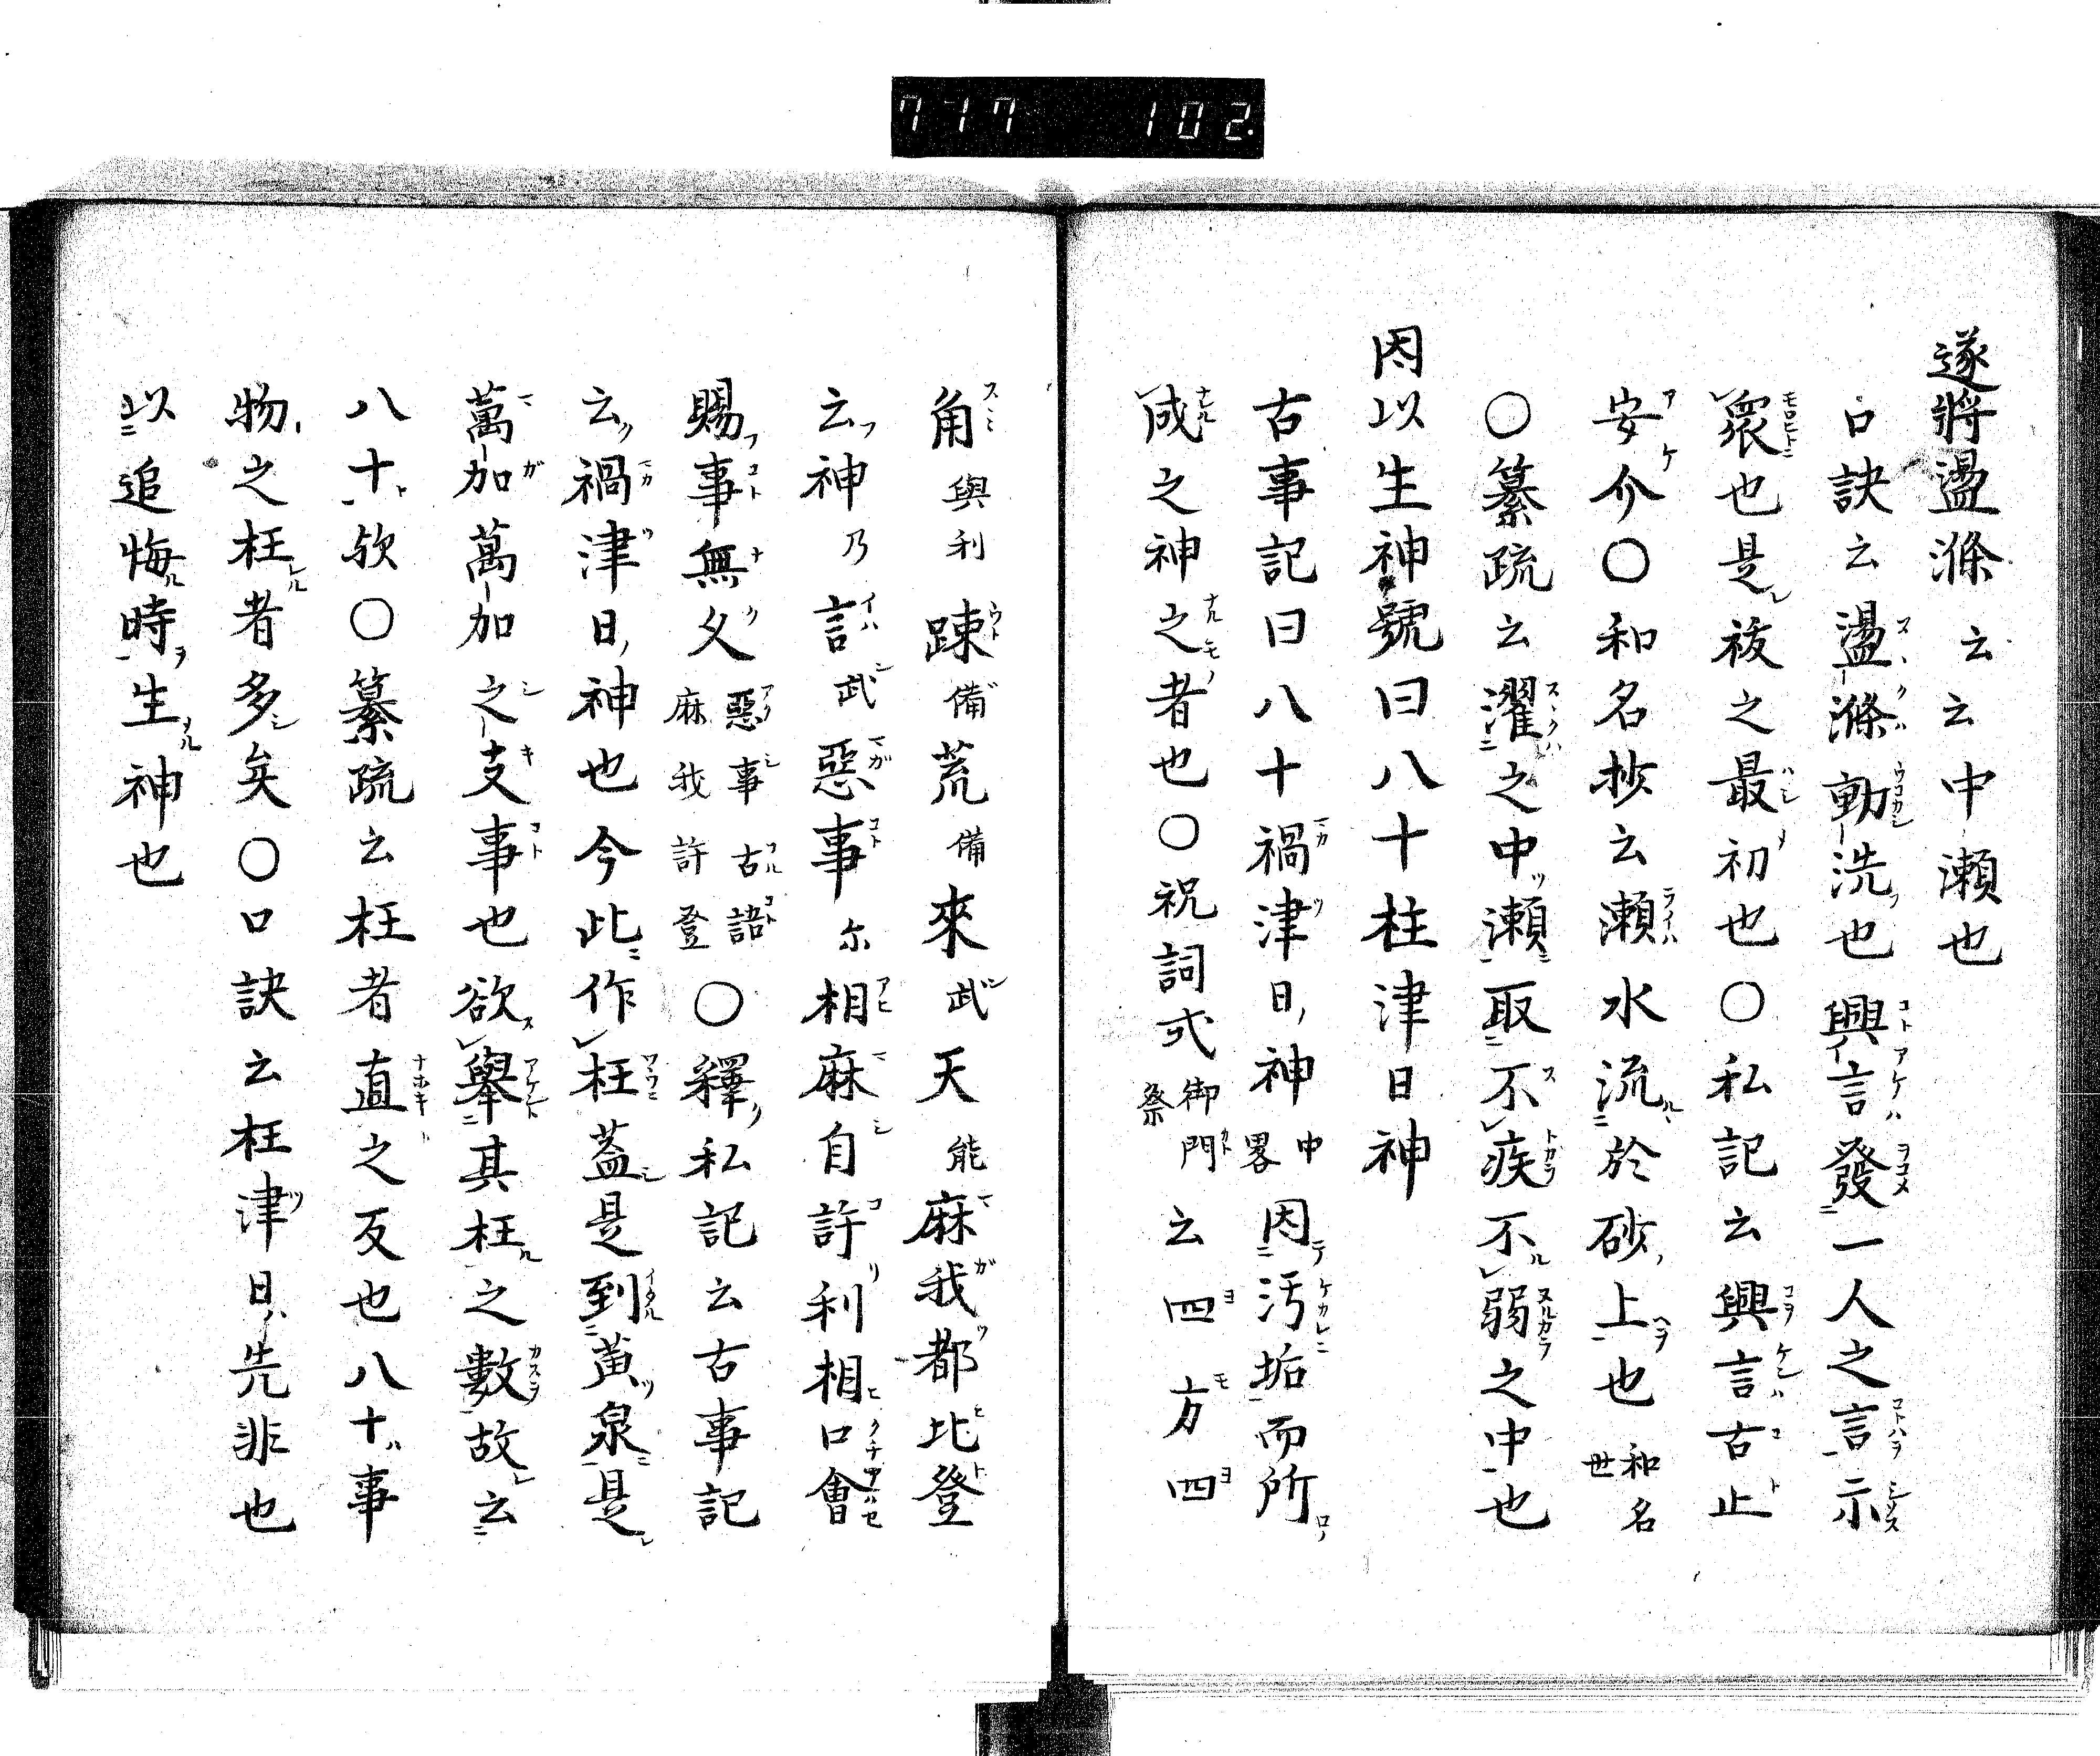 777 102.
遂將盪滌云云中瀬也
口訣云盪滌動洗也興言發一人之言示
衆也是祓之最初也〇私記云興言古止
安介〇和名抄云瀬水流於砂上也和名世
〇纂疏云濯之中瀬取不疾不弱之中也
因以生神號曰八十柱津日神
古事記曰八十禍津日神中畧因汚垢而所
成之神之者也〇祝詞式御門祭云四方四
角與利疎備荒備來武天能麻我都比登
云神乃言武惡事尓相麻自許利相口會
賜事無久惡事古語麻我許登〇釋私記云古事記
云禍津日神也今此作枉蓋是到黄泉是
萬加萬加之支事也欲擧其枉之數故云
八十欤〇纂疏云枉者直之反也八十事
物之枉者多矣〇口訣云枉津日先非也
以追悔時生神也